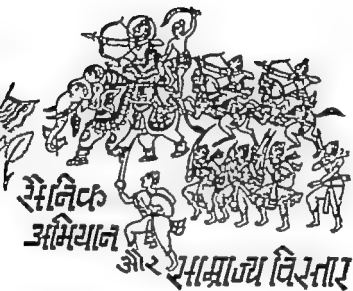 सैनिक
अभियान
और साम्राज्य विस्तार